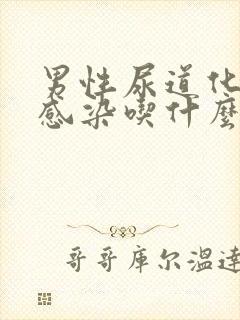 男性尿道化
感染喫什麼
哥哥庫尔温達